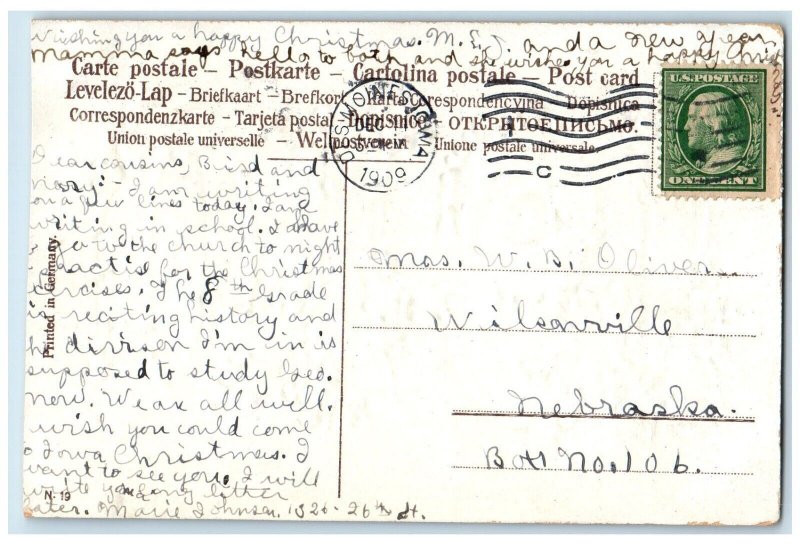 Wishing you a happy Christmas. M. E. J. and a new year
Mamma says hello to both and she wishes you a happy Chris
Carte postale – Postkarte – Cartolina postale – Post card
Levelező-Lap – Briefkaart – Brefkort – Karta Correspondencyjna Dopisnica
Correspondenzkarte – Tarjeta postal – Dopisnice – ОТКРЫТОЕ ПИСЬМО.
Union postale universelle – Weltpostverein – Unione postale universale.
DES MOINES, IOWA
DEC
1909
C
U.S. POSTAGE
ONE CENT
Dear cousins, Bird and
Mary:- I am writing
a few lines today. I am
writing in school. I have
go to the church to night
practise for the Christmas
exercises. The 8th Grade
is reciting history and
the division I'm in is
supposed to study Geo.
now. We are all well.
wish you could come
to Iowa Christmas. I
want to see you. I will
write you a long letter
later. Marie Johnson. 1326-26th St.
Mrs. W. B. Oliver
Wilsonville
Nebraska.
Box No. 106.
Printed in Germany.
N-19